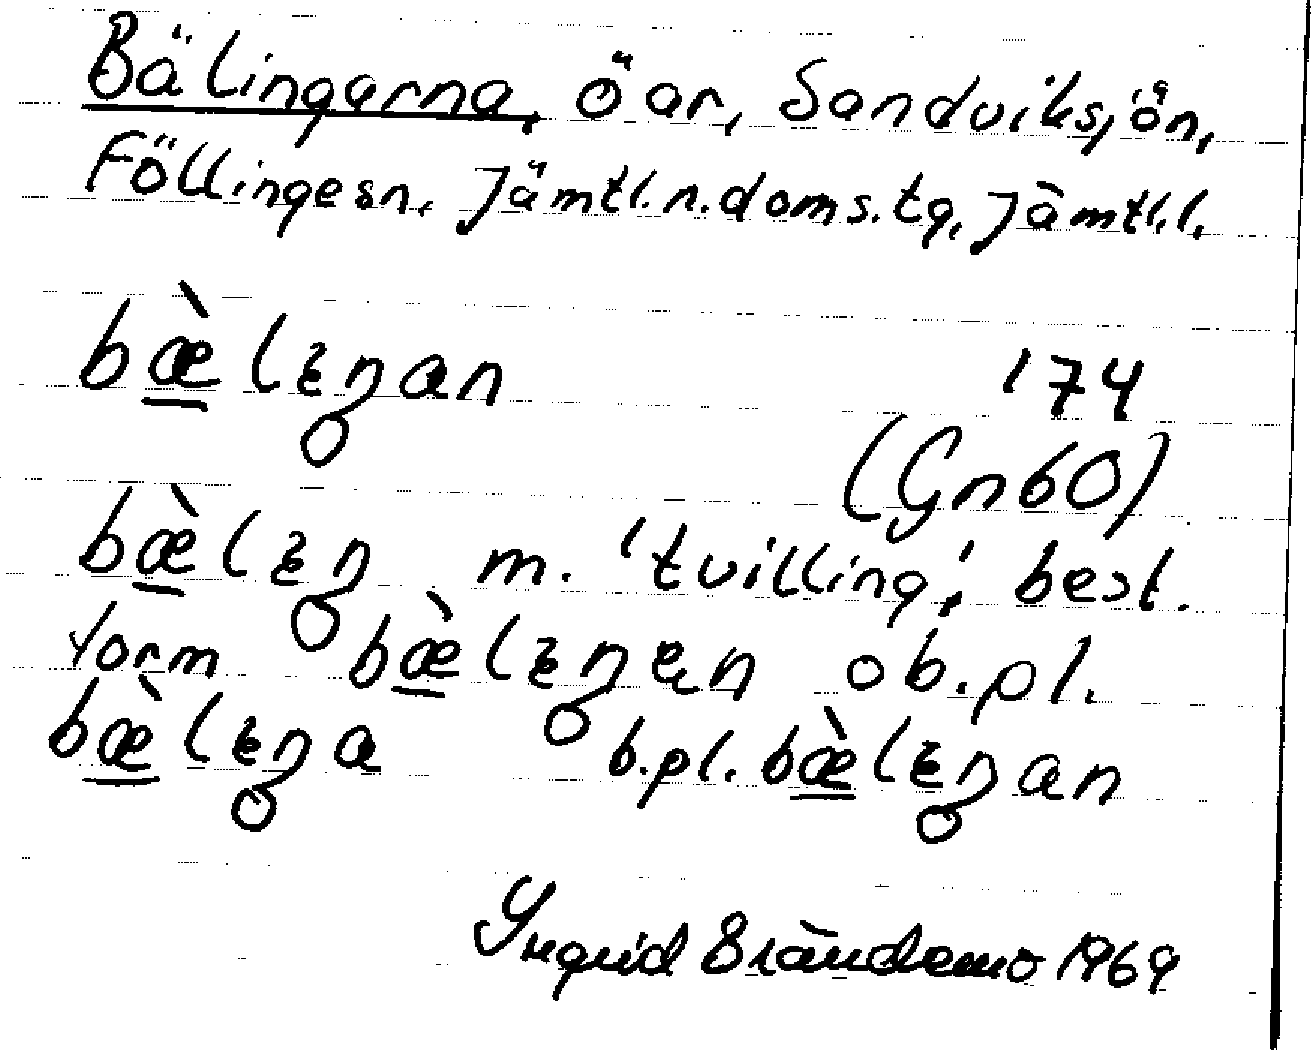 Bälingarna, öar, Sandviksjön,
Föllingesn. Jämtl.n.doms.tg, Jämtl.l.
bæ̀lɩŋan '74
(Gn60)
bæ̀lɩŋ m. 'tvilling', best.
form bæ̀lɩŋen ob.pl.
bæ̀lɩŋa b.pl. bæ̀lɩŋan
Ingrid Brändemo 1969